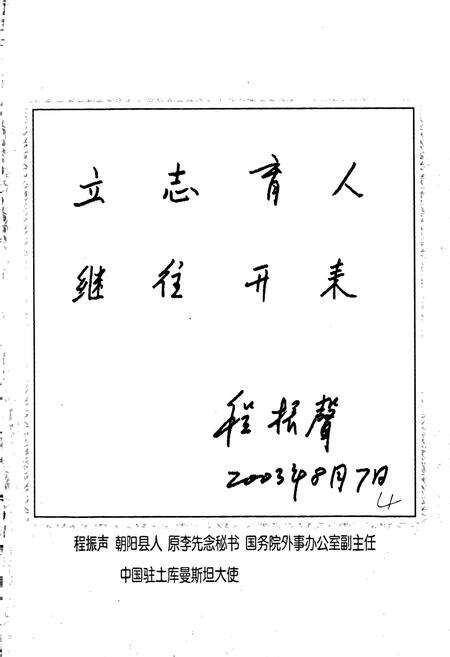 立志育人
继往开来
程振聲
2003年8月7日
程振声 朝阳县人 原李先念秘书 国务院外事办公室副主任
中国驻土库曼斯坦大使